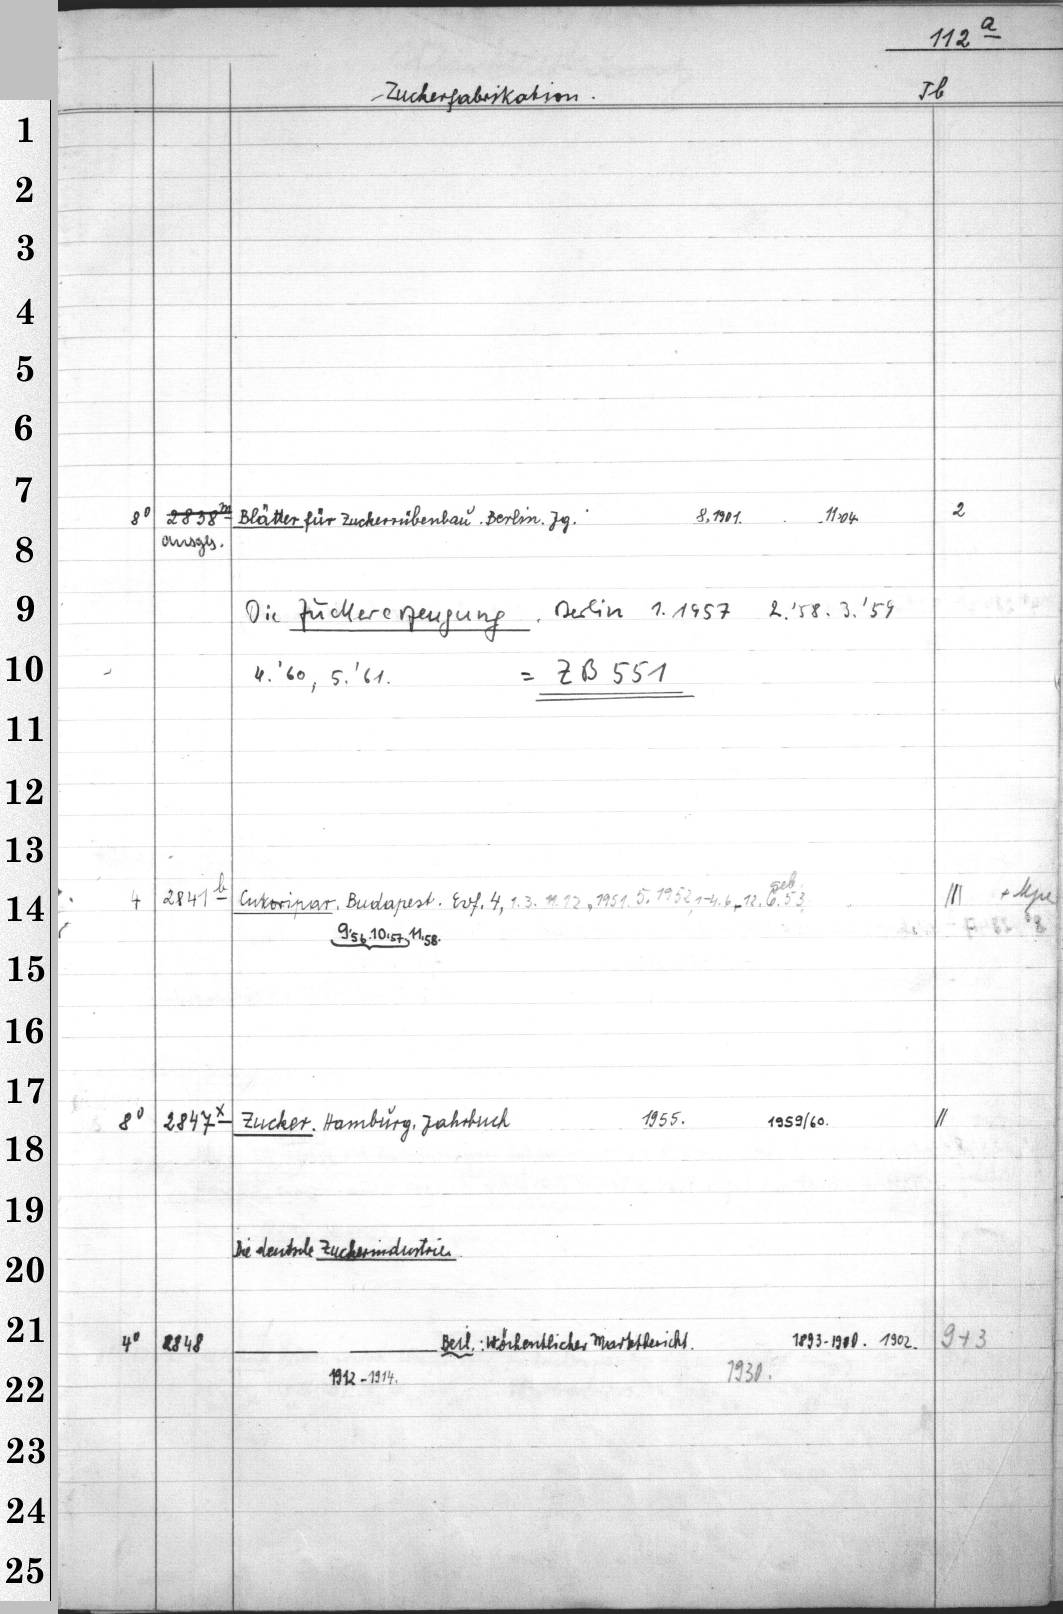 112 a
Zuckerfabrikation. Tb
1
2
3
4
5
6
7
8° 2838 m Blätter für Zuckerrübenbau. Berlin. Jg. 8,1901. 11.04. 2
ausges.
8
9 Die Zuckererzeugung. Berlin 1. 1957 2.'58. 3.'59
10 4.'60, 5.'61. = ZB 551
11
12
13
geb.
14 4 2841 b Cukoripar. Budapest. Evf. 4, 1.3. 11.12, 1951. 5. 1952, 1-4.6,-12. 6.53 |||
9'56.10'57, 11'58.
15
16
17
8° 2847 x Zucker. Hamburg. Jahrbuch 1955. 1959/60. ||
18
19
Die deutsche Zuckerindustrie.
20
21 4° 2848 Beil.: Wöchentlicher Marktbericht. 1893-1900. 1902. 9+3
22 1912-1914. 1930.
23
24
25